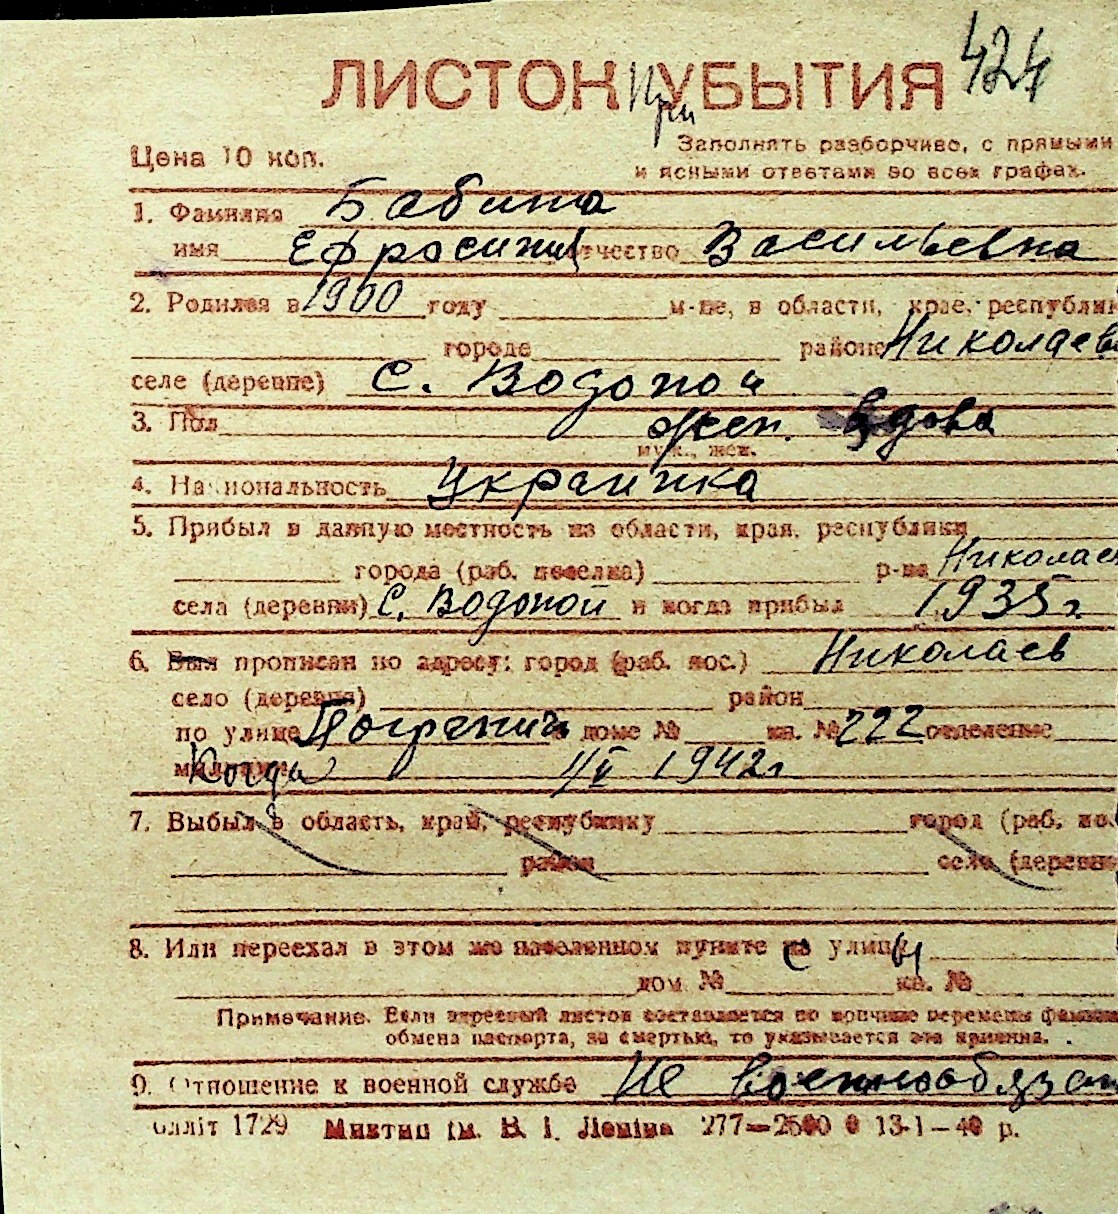 424
ЛИСТОК При УБЫТИЯ
Цена 10 коп.
Заполнять разборчиво, с прямыми
и ясными ответами во всех графах.
1. Фамилия Бабина
имя Ефросиния отчество Васильевна
2. Родился в 1900 году м-це, в области, крае, республик
городе районе Николаев
селе (деревне) с. Водопой
3. Пол жен. вдова
муж., жен.
4. Национальность Украинка
5. Прибыл в данную местность из области, края, республики
города (раб. поселка) р-на Николаев
села (деревни) С. Водопой и когда прибыл 1935 г
6. Был прописан по адресу: город (раб. пос.) Николаев
село (деревня) район
по улице Погранич дом № кв. № 222 отделение
милиции Когда 1/V 1942 г
7. Выбыл в область, край, республику город (раб. по
район село (деревн
8. Или переехал в этом же населенном пункте с улицы
дом № кв. №
Примечание. Если адресный листок составляется по причине перемены фамили
обмена паспорта, за смертью, то указывается эта причина.
9. Отношение к военной службе Не военнообязан
блліт 1729 Миктип ім. В. І. Леніна 277—2500 0 13-1—40 р.